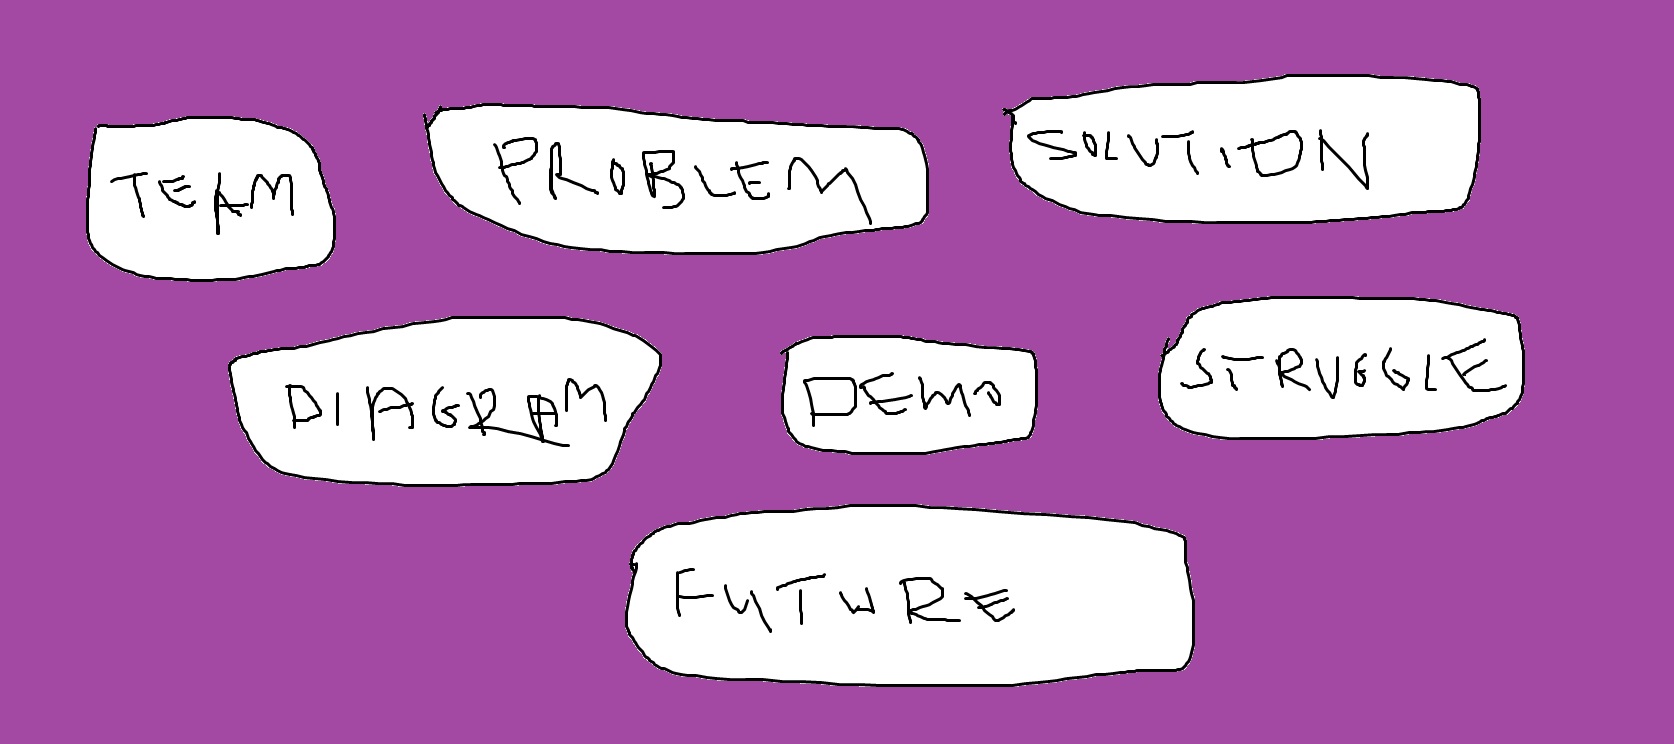 TEAM
PROBLEM
SOLUTION
DIAGRAM
DEMO
STRUGGLE
FUTURE